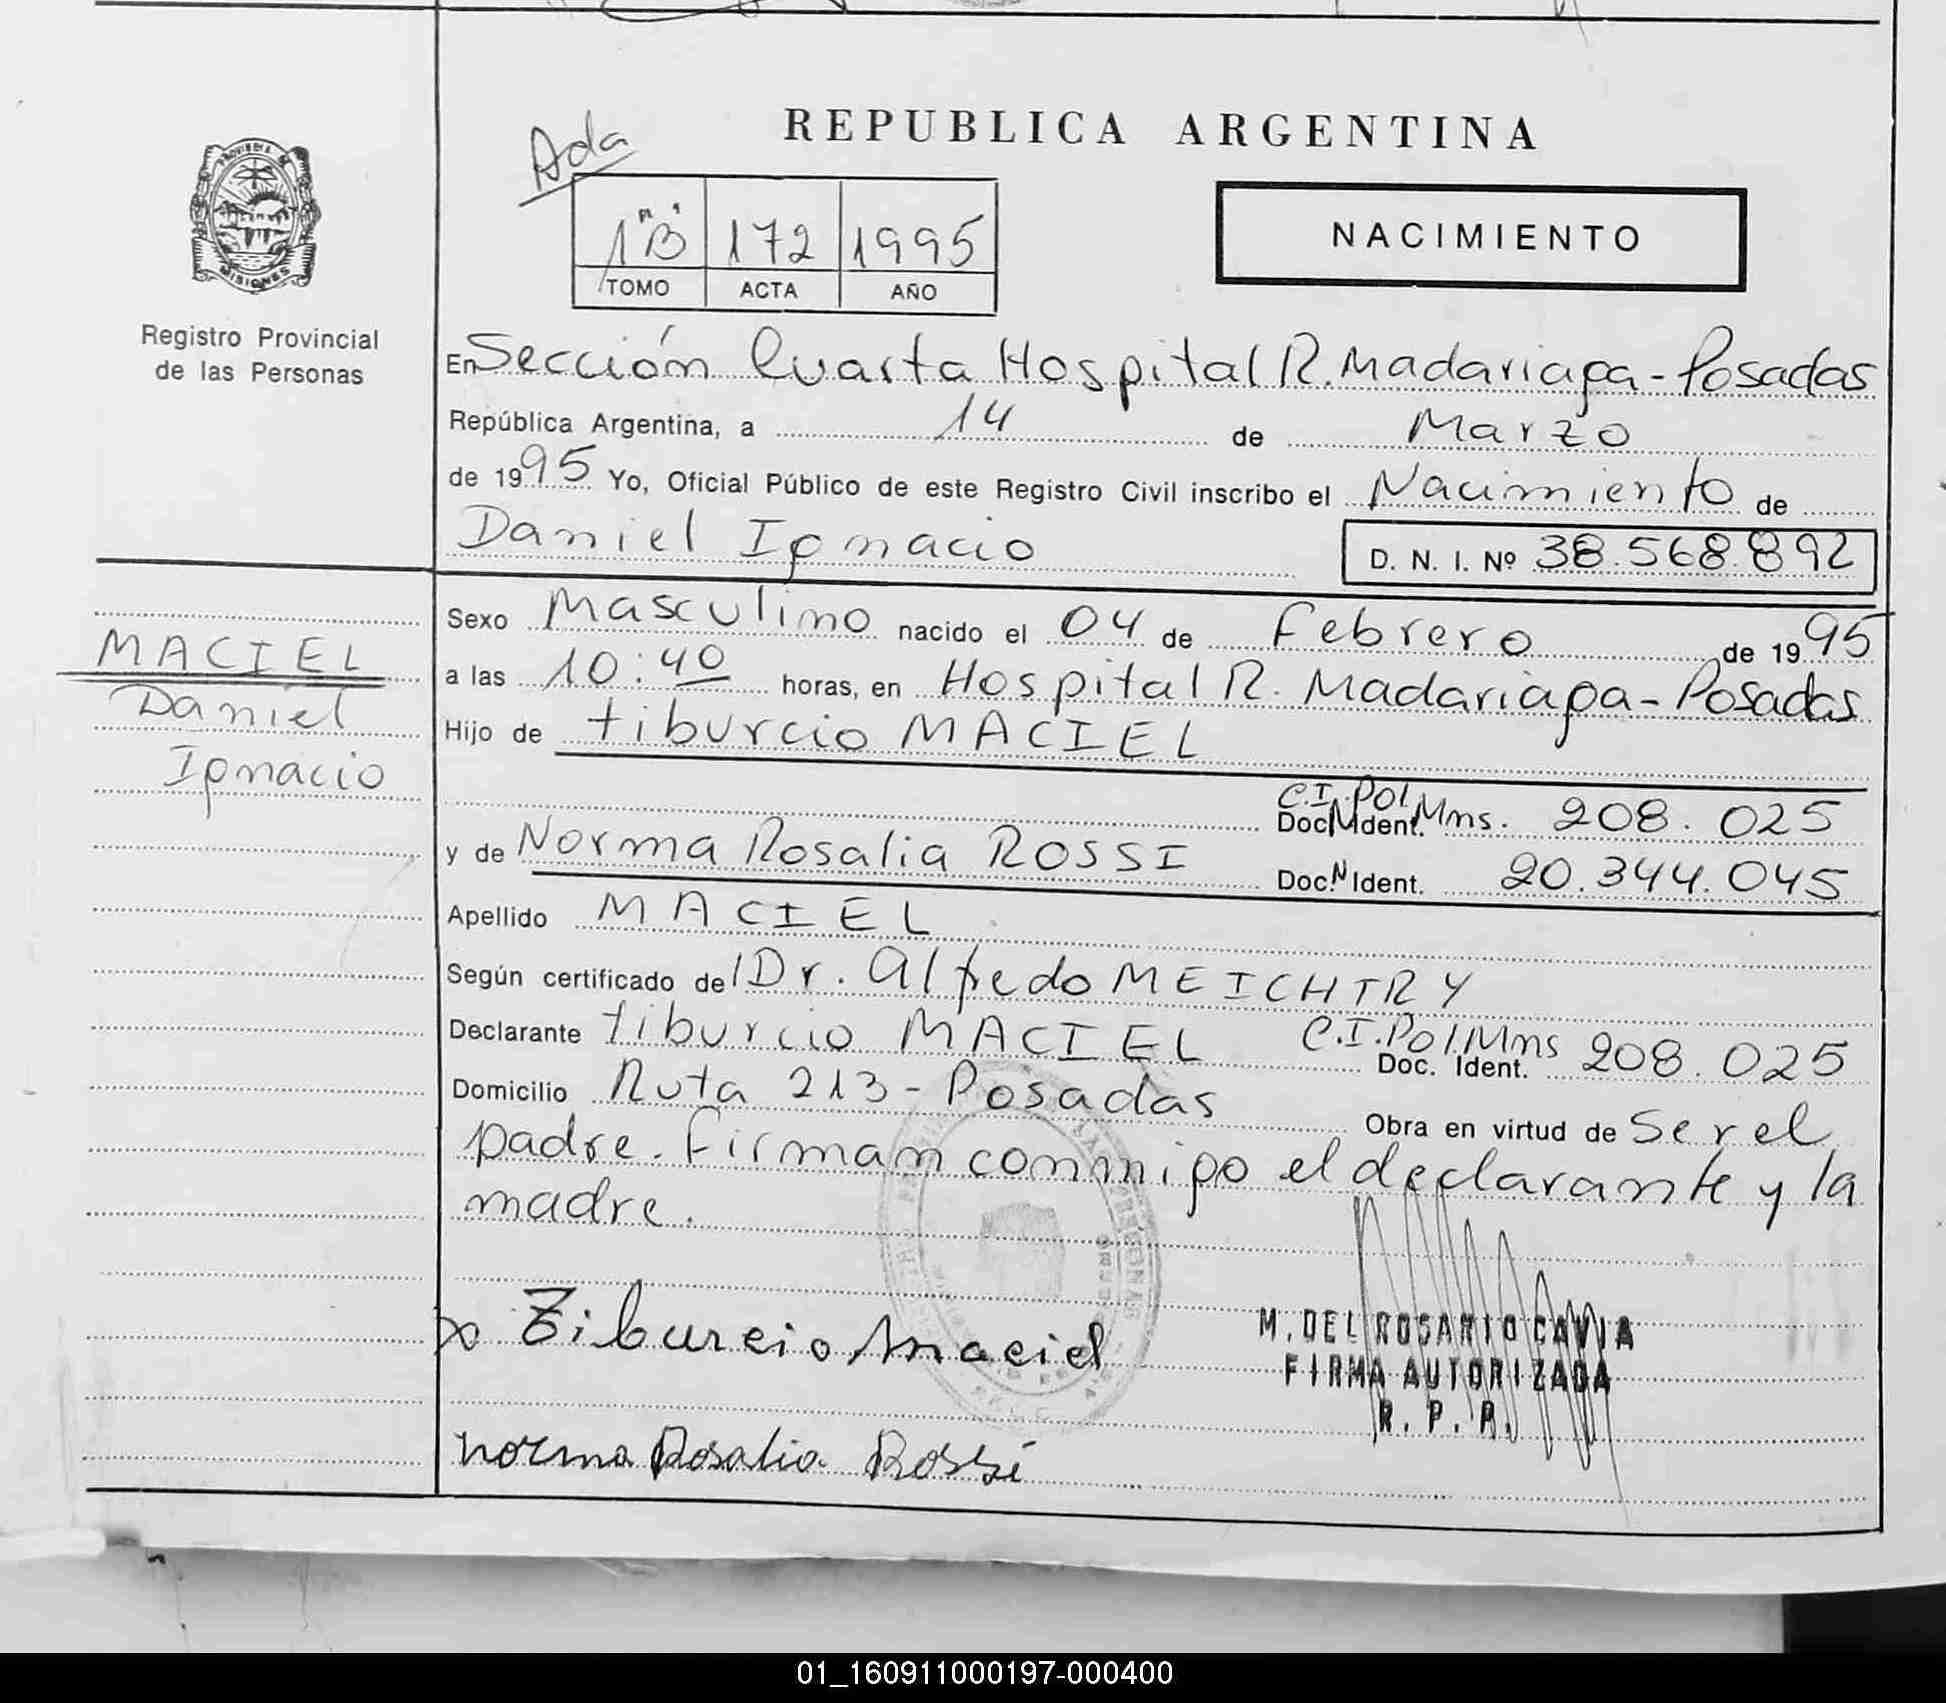 REPUBLICA ARGENTINA
Ada
1"B" 172 1995
TOMO ACTA AÑO
NACIMIENTO
PROVINCIA DE
MISIONES
Registro Provincial
de las Personas
En Sección Cuarta Hospital R. Madariaga - Posadas
República Argentina, a 14 de Marzo
de 1995 Yo, Oficial Público de este Registro Civil inscribo el Nacimiento de
Daniel Ignacio D. N. I. Nº 38.568.892
MACIEL
Daniel
Ignacio
Sexo Masculino nacido el 04 de Febrero de 1995
a las 10:40 horas, en Hospital R. Madariaga - Posadas
Hijo de tiburcio MACIEL
C.I. Pol. Mns. Doc. Ident. 208.025
y de Norma Rosalia ROSSI Doc. N Ident. 20.344.045
Apellido MACIEL
Según certificado del Dr. Alfredo MEICHTRY
Declarante tiburcio MACIEL C.I. Pol. Mns Doc. Ident. 208.025
Domicilio Ruta 213 - Posadas Obra en virtud de Ser el
padre. Firman conmigo el declarante y la
madre.
Tiburcio Maciel
M. DEL ROSARIO CAVIA
FIRMA AUTORIZADA
R. P. P.
Norma Rosalia Rossi
01_160911000197-000400